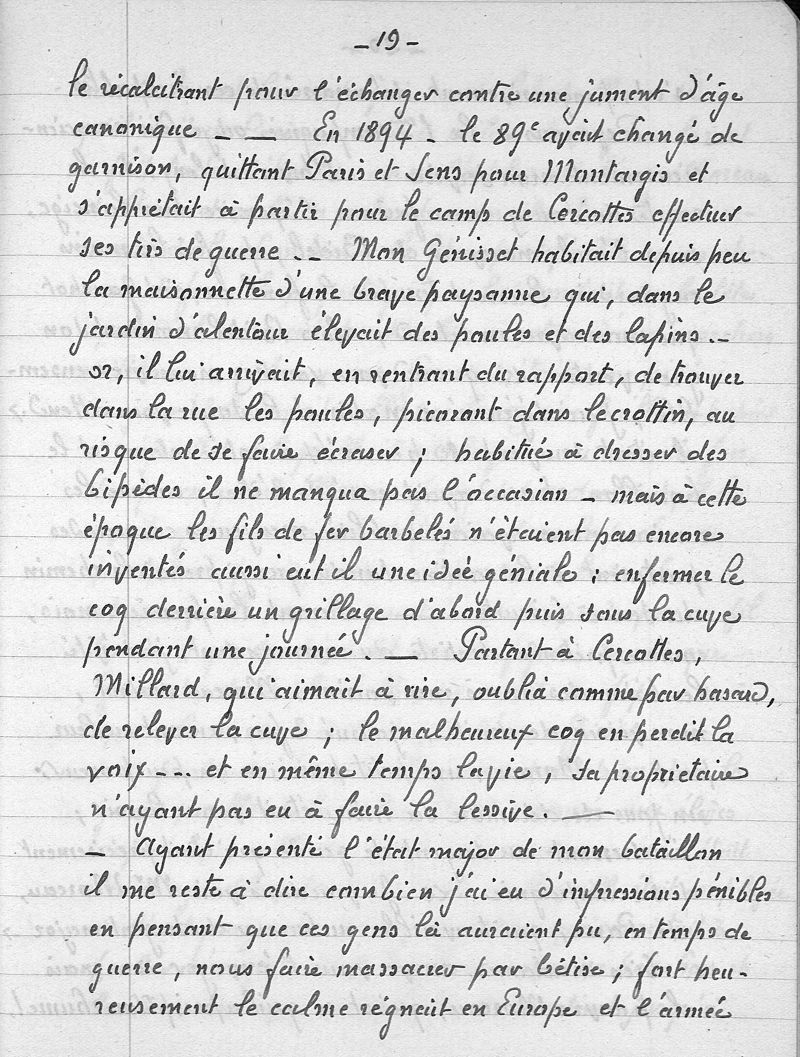 - 19 -
le récalcitrant pour l'échanger contre une jument d'âge
canonique - — En 1894 - le 89e avait changé de
garnison, quittant Paris et Sens pour Montargis et
s'apprêtait à partir pour le camp de Cercottes effectuer
ses tirs de guerre. - - Mon Génisset habitait depuis peu
la maisonnette d'une brave paysanne qui, dans le
jardin d'alentour élevait des poules et des lapins. -
or, il lui arrivait, en rentrant du rapport, de trouver
dans la rue les poules, picorant dans le crottin, au
risque de se faire écraser ; habitué à dresser des
bipèdes il ne manqua pas l'occasion - mais à cette
époque les fils de fer barbelés n'étaient pas encore
inventés aussi eut il une ideé géniale ; enfermer le
coq derrière un grillage d'abord puis sous la cuve
pendant une journée. — Partant à Cercottes,
Millard, qui aimait à rire, oublia comme par hasard,
de relever la cuve ; le malheureux coq en perdit la
voix - - - et en même temps la vie, sa propriétaire
n'ayant pas eu à faire la lessive. —
- Ayant présenté l'état major de mon bataillon
il me reste à dire combien j'ai eu d'impressions pénibles
en pensant que ces gens là auraient pu, en temps de
guerre, nous faire massacrer par bêtise ; fort heu-
reusement le calme régnait en Europe et l'armée